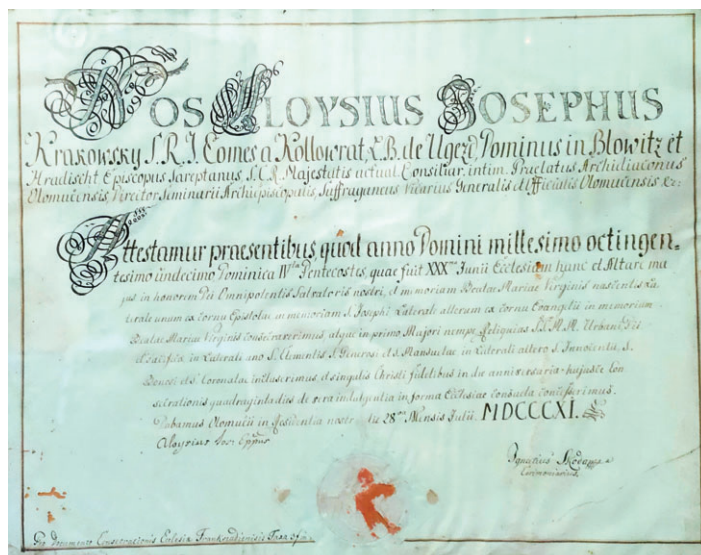 NOS ALOYSIUS JOSEPHUS
Krakowsky S.R.I. Comes a Kollowrat, L.B. de Ugezd, Dominus in Blowitz et
Hradischt Episcopus Sareptanus, S.C.R. Majestatis actual. Consiliar. intim. Praelatus Archidiaconus
Olomucensis, Director Seminarii Archiepiscopalis, Suffraganeus Vicarius Generalis et Officialis Olomucensis &c:
Attestamur praesentibus, quod anno Domini millesimo octingen=
tesimo undecimo Dominica IVta Pentecostes, quae fuit XXXma Junii Ecclesiam hanc et Altare ma
jus in honorem Dei Omnipotentis Salvatoris nostri, et memoriam Beatae Mariae Virginis nascentis La
terale unum ex cornu Epistolae in memoriam S. Josephi Laterale alterum ex cornu Evangelii in memoriam
Beatae Mariae Virginis consecraverimus, atque in primo Majori nempe Reliquias S.S. M.M. Urbani
et in Laterale uno S. Clementis S. Generosi et S. Mansuetae, in Laterali altero S. Innocentii, S.
et S. Coronatae incluserimus, et singulis Christi fidelibus in die anniversaria hujusce Con
secrationis quadraginta dies de vera indulgentia in forma Ecclesiae consueta concesserimus.
Dabamus Olomucii in Residentia nostra die 28va Mensis Julii MDCCCXI.
Aloysius Eppus
Ignatius Skoda
Pro documento Consecrationis Ecclesiae